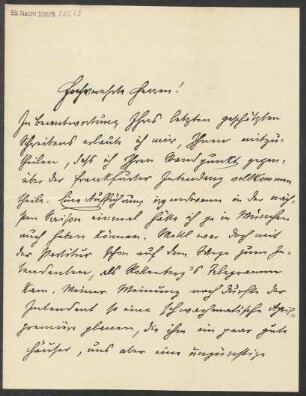 55 Nachl 100/B,
Hochverehrte Herren!
In Beantwortung Ihres letzten geschätzten
Schreibens erlaube ich mir, Ihnen mitzu-
theilen, dass ich Ihren Standpunkt gegen-
über der Frankfurter Intendenz vollkommen
theile. Eine Aufführung irgendwann in der näch-
sten Saison einmal hätte ich ja in München
auch haben können. Mottl war doch mit
der Partitur schon auf dem Wege zum In-
tendanten, als Telegramm
kam. Meiner Meinung nach dürfte der
Intendant so eine schwachmatische April-
première planen, die ihm ein paar gute
Häuser, uns aber eine ungünstige